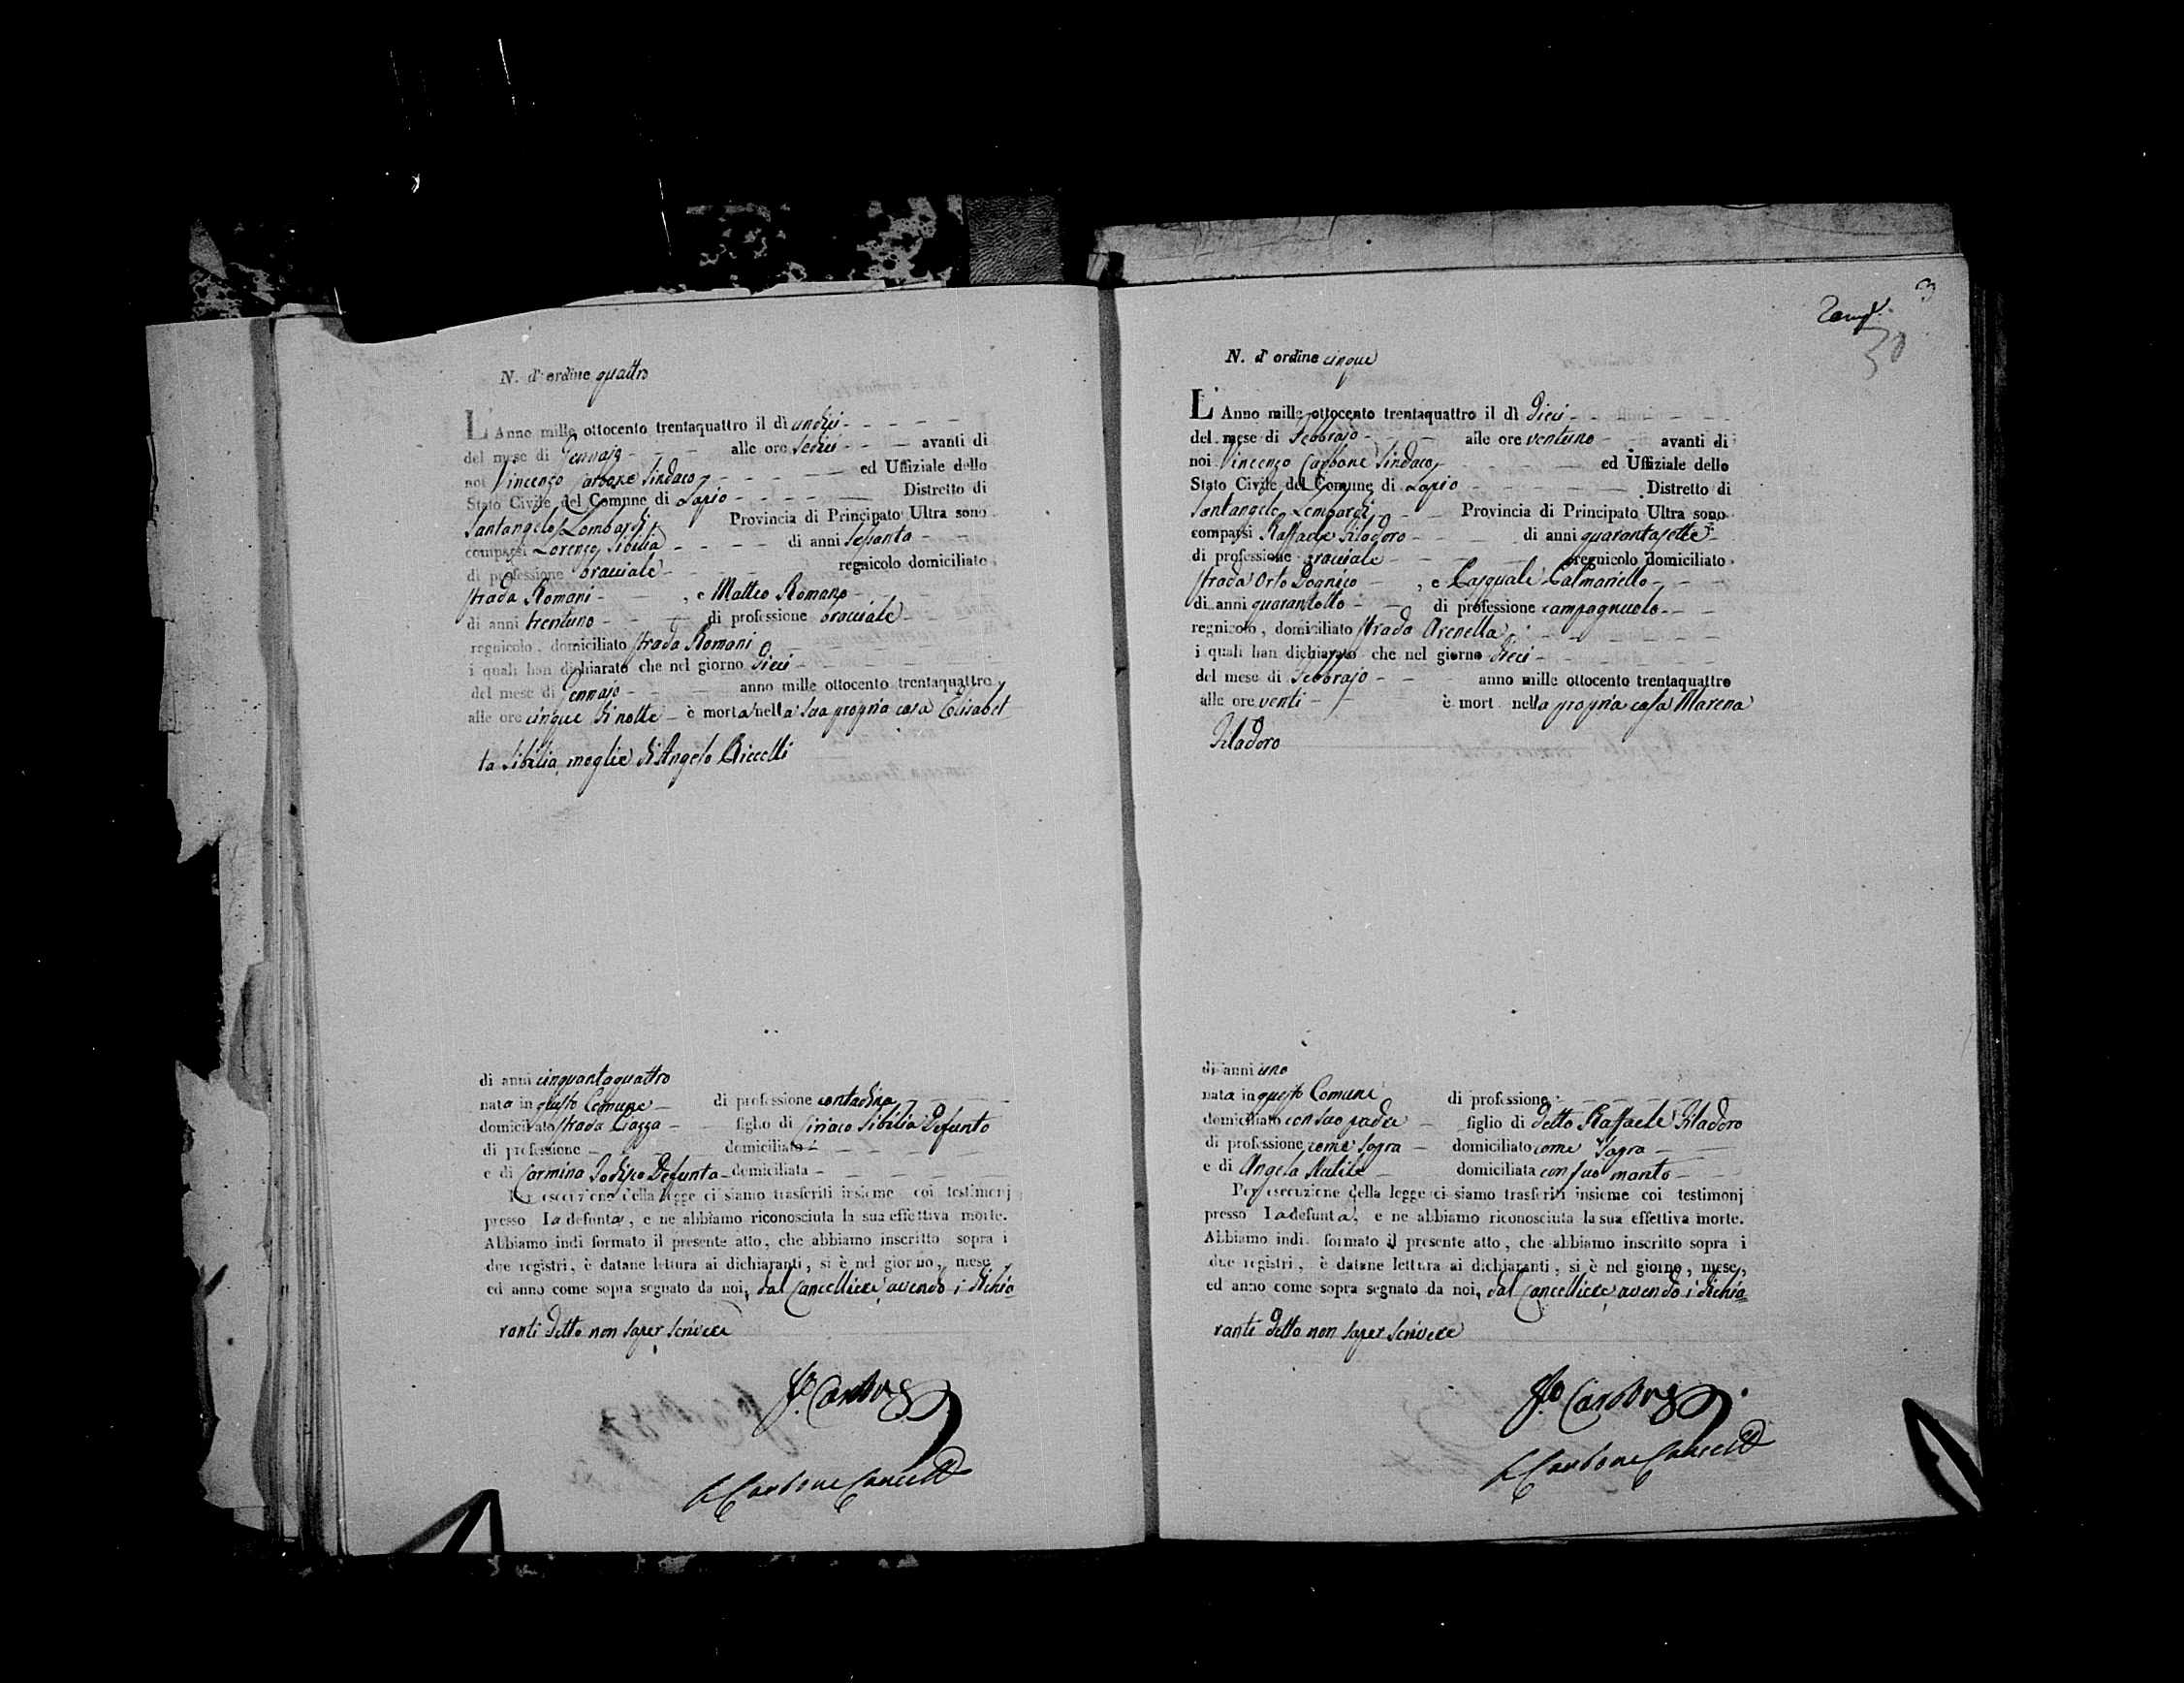 N. d'ordine quattro
L'Anno mille ottocento trentaquattro il dì undici
del mese di Gennajo alle ore sedici avanti di
noi Vincenzo Carbone Sindaco ed Uffiziale dello
Stato Civile del Comune di Lapio Distretto di
Santangelo Lombardi Provincia di Principato Ultra sono
comparsi Lorenzo Sibilia di anni sessanta
di professione bracciale regnicolo domiciliato
strada Romani , e Matteo Romano
di anni trentuno di professione bracciale
regnicolo, domiciliato strada Romani
i quali han dichiarato che nel giorno dieci
del mese di Gennajo anno mille ottocento trentaquattro
alle ore cinque di notte è morta nella sua propria casa Elisabet
ta Sibilia moglie di Angelo Ciccelli
di anni cinquantaquattro
nata in questo Comune di professione contadina
domiciliato strada Piazza figlio di Ciriaco Sibilia Defunto
di professione domiciliato
e di Carmina Defunta domiciliata
Per esecuzione della legge ci siamo trasferiti insieme coi testimonj
presso la defunta, e ne abbiamo riconosciuta la sua effettiva morte.
Abbiamo indi formato il presente atto, che abbiamo inscritto sopra i
due registri, è datane lettura ai dichiaranti, si è nel giorno, mese,
ed anno come sopra segnato da noi, dal Cancelliere, avendo i dichia
ranti detto non saper scrivere
Carbone
Carbone Cancell
3
30
N. d'ordine cinque
L'Anno mille ottocento trentaquattro il dì dieci
del mese di Febbrajo alle ore ventuno avanti di
noi Vincenzo Carbone Sindaco ed Uffiziale dello
Stato Civile del Comune di Lapio Distretto di
Santangelo Lombardi Provincia di Principato Ultra sono
comparsi Raffaele Filadoro di anni quarantasette
di professione bracciale regnicolo domiciliato
strada Orto Doanico , e Pasquale Palmariello
di anni quarantotto di professione campagnuolo
regnicolo, domiciliato strada Arenella
i quali han dichiarato che nel giorno dieci
del mese di Febbrajo anno mille ottocento trentaquattro
alle ore venti è mort nella propria casa Marena
Filadoro
di anni uno
nata in questo Comune di professione
domiciliato con suo padre figlio di detto Raffaele Filadoro
di professione come sopra domiciliato come sopra
e di Angela domiciliata con suo marito
Per esecuzione della legge ci siamo trasferiti insieme coi testimonj
presso la defunta, e ne abbiamo riconosciuta la sua effettiva morte.
Abbiamo indi formato il presente atto, che abbiamo inscritto sopra i
due registri, è datane lettura ai dichiaranti, si è nel giorno, mese,
ed anno come sopra segnato da noi, dal Cancelliere, avendo i dichia
ranti detto non saper scrivere
Carbone
Carbone Cancell